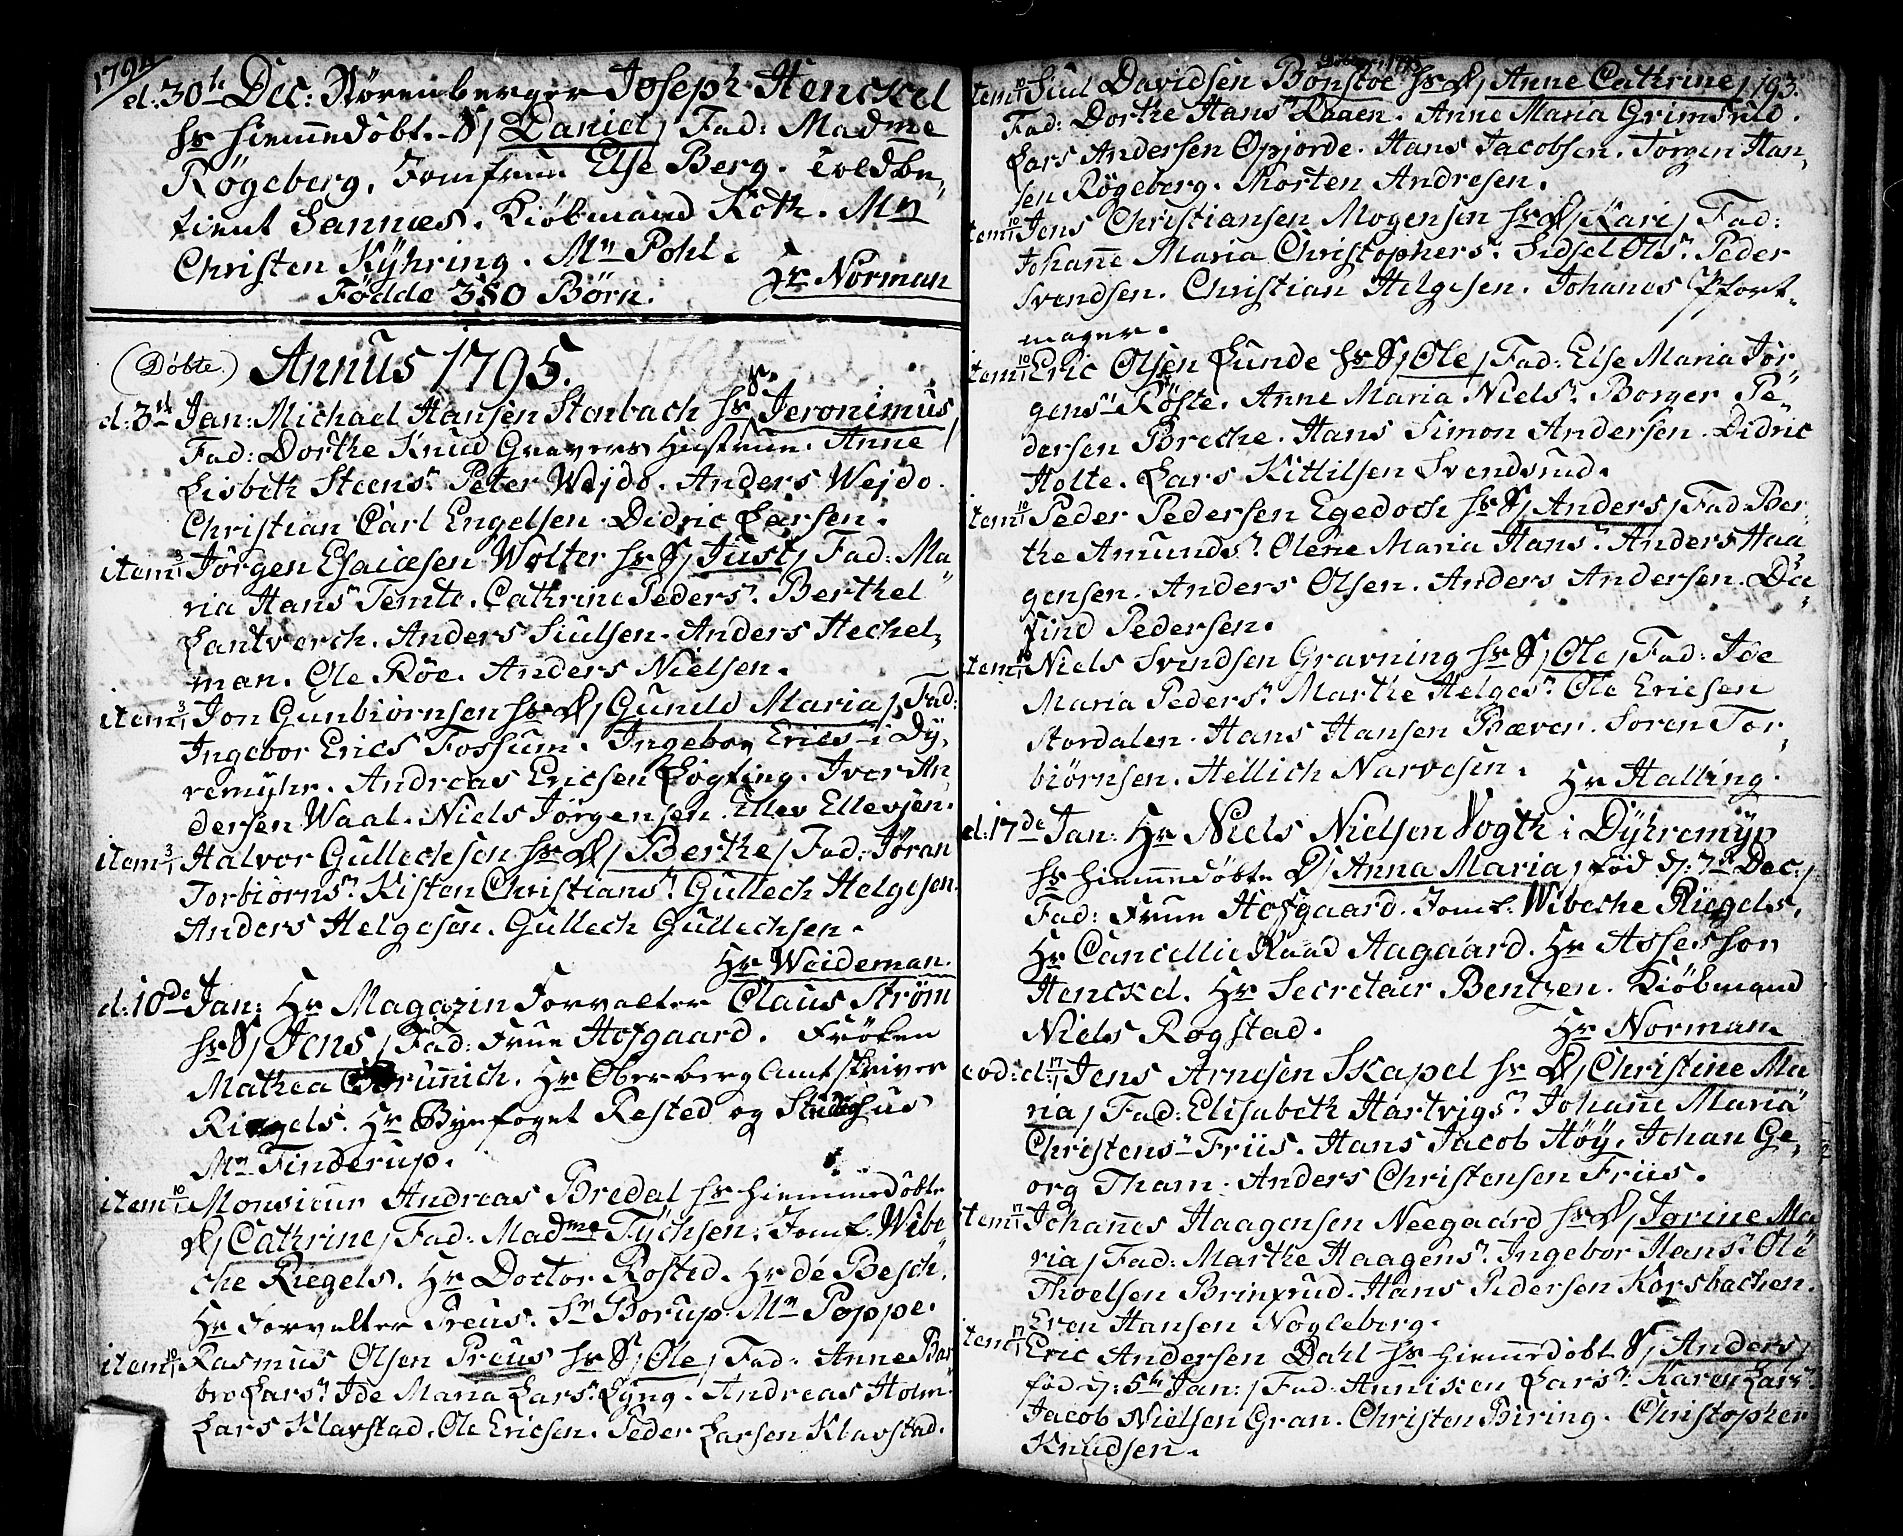 1794
d: 30te Dec: Nörenberger Joseph Henckel
hs hiemmedøbt S/ Daniel / Fad: Madme
Røgeberg, Jomfrue Else Berg. Toldbe„
tient Sannæs. Kiøbmand Roth. Mr
Christen Kyhring. Mr Pohl.
Hr Norman
Fødde 380 Børn.
(Døbte) Annus 1795.
d: 3di Jan: Michael Hansen Stenbach hs S. / Jeronimus
Fad: Dorthe Knud Gravers Hustrue. Anne /
Lisbeth Steensr. Peter Wejdo. Anders Wejdo.
Christian Carl Engelsen. Didric Larsen.
item 3/1 Jørgen Esaiesen Wolter hs S/ Just / Fad: Ma„
ria Hansr Temte. Cathrine Pedersr. Berthel
Lantverch. Anders Siulsen. Anders Hechel„
man. Ole Röe. Anders Nielsen.
item 3/1 Jon Gunbiørnsen hs D/ Gunild Maria / Fad:
Ingebor Erics Fossum. Ingebor Erics i Dy„
remyhr. Andreas Ericsen Løgting. Iver An„
dersen Waal. Niels Jørgensen. Ellev Ellevsen.
item 3/1 Halvor Gullechsen hs D/ Berthe / Fad: Jöran
Torbiørnsr. Kisten Christiansr. Gullech Helgesen.
Anders Helgesen. Gullech Gullechsen.
Hr Weideman.
d: 10de Jan: Hr Magazin Forvalter Claus Strøm
hs S/ Jens / Fad: Frue Hofgaard. Frøken
Mathea Brünnich. Hr Oberberg Amtskriver
Riegels. Hr Byefoget Rosted og
Mr Finderup.
item 10/1 Monsieur Andreas Bredal hs hiemmedøbte
D/ Cathrine / Fad: Madme Tychsen. Jomf. Wibe„
che Riegels. Hr Doctor Rosted. Hr de Besch.
Hr Forvalter Preus. Sr Borup. Mr Poppe.
item 10/1 Rasmus Olsen Preus hs S/ Ole / Fad: Anne Bar
bro Larsr. Ide Maria Larsr. Lyng. Andreas Holm.
Lars Klavstad. Ole Ericsen. Peder Larsen Klavstad.
193.
item 10/1 Siul Davidsen Bonstoe hs D/ Anne Cathrine /
Fad: Dorthe Hansr Raaen. Anne Maria Grimsrud.
Lars Andersen Opjorde. Hans Jacobsen. Jørgen Han„
sen Røgeberg. Morten Andresen.
item 10/1 Jens Christiansen Mogensen hs D/ Kari / Fad:
Johanne Maria Christophersr. Sidsel Olsr. Peder
Svendsen. Christian Helgesen. Johanes Pfort„
mager.
item 10/1 Eric Olsen Lunde hs S/ Ole / Fad: Else Maria Jør„
gensr Röste. Anne Maria Nielsr. Borger Pe„
dersen Breche. Hans Simon Andersen. Didric
Holte. Lars Kittilsen Svendsrud.
item 10/1 Peder Pedersen Egedoch hs S/ Anders / Fad: Ber„
the Amundsr. Olene Maria Hansr. Anders Haa„
gensen. Anders Olsen. Anders Andersen. Da„
find Pedersen.
item 10/1 Niels Svendsen Gravning hs S/ Ole / Fad: Ide
Maria Pedersr. Marthe Helgesr. Ole Ericsen
Stordalen. Hans Hansen Bæver. Soren Tor„
biørnsen. Hellich Narvesen.
Hr Halling.
d: 17de Jan: Hr Niels Nielsen Vogth i Dyhremyr
hs hiemmedøbte D/ Anna Maria / fød d: 7de Dec: /
Fad: Frue Hofgaard. Jomf. Wibeche Riegels.
Hr Cancellie Raad Aagaard. Hr Assessor
Henckel. Hr Secretair Bentzen. Kiöbmand
Niels Rogstad.
Hr Norman
eod: d: 17/1 Jens Arnesen Skapel hs D/ Christine Ma„
ria / Fad: Elisabeth Hartvigsr. Johanne Maria
Christensr Friis. Hans Jacob Höy. Johan Ge„
org Tham. Anders Christensen Friis.
item 17/1 Johannes Haagensen Neegaard hs D/ Jorine Ma„
ria / Fad: Marthe Haagensr. Ingebor Hansr. Ole
Thoelsen Brinxrud. Hans Pedersen Korsbachen.
Even Hansen Nøgleberg.
item 17/1 Eric Andersen Dahl hs hiemmedøbt S/ Anders /
fød d: 5te Jan: / Fad: Anniken Larsr. Karen Larsr.
Jacob Nielsen Gran. Christen Biring. Christopher
Knudsen.